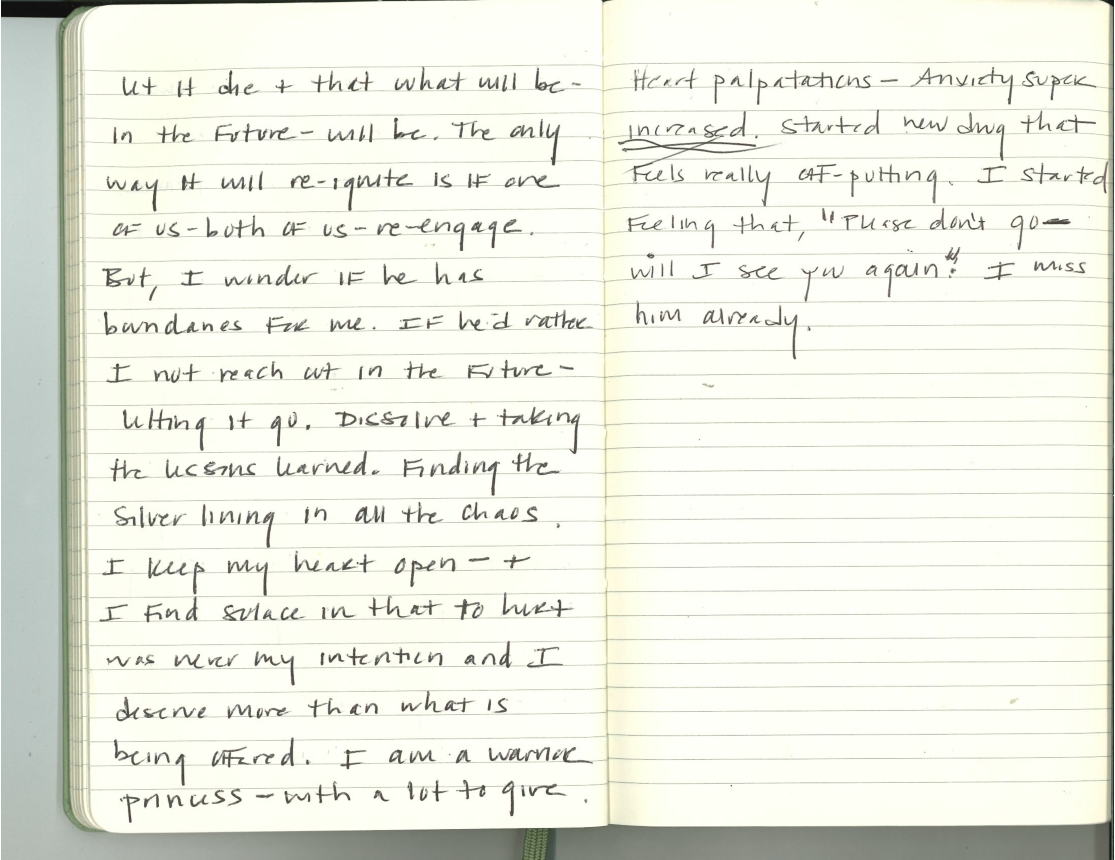 let it die + that what will be -
in the future - will be. The only
way it will re-ignite is if one
of us - both of us - re-engage.
But, I wonder if he has
boundaries for me. If he'd rather
I not reach out in the future -
letting it go. Dissolve + taking
the lessons learned. Finding the
silver lining in all the chaos.
I keep my heart open - +
I find solace in that to hurt
was never my intention and I
deserve more than what is
being offered. I am a warrior
princess - with a lot to give.
Heart palpatations - Anxiety super
increased. Started new drug that
feels really off-putting. I started
feeling that, "Please don't go -
will I see you again!" I miss
him already.